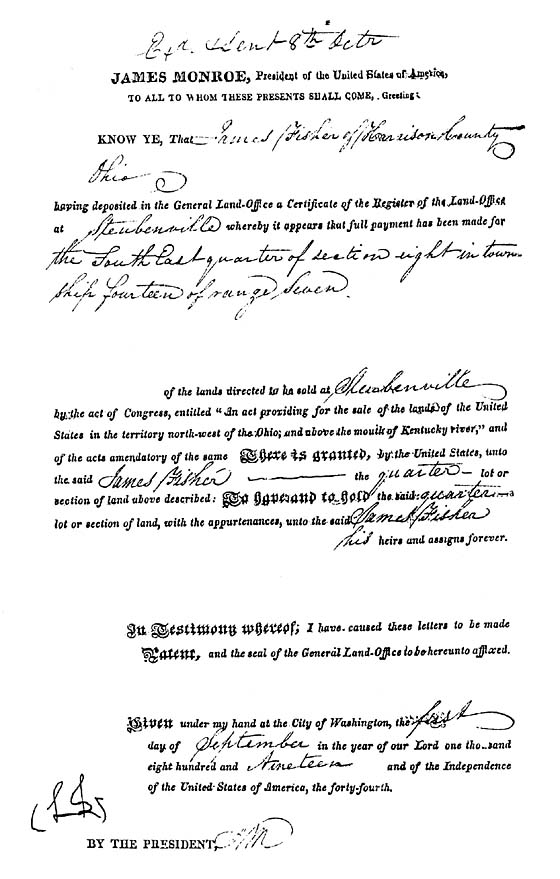 Exd. Sent 8th Octr
JAMES MONROE, President of the United States of America,
TO ALL TO WHOM THESE PRESENTS SHALL COME, Greeting:
KNOW YE, That James Fisher of Harrison County
Ohio
having deposited in the General Land-Office a Certificate of the Register of the Land-Office
at Steubenville whereby it appears that full payment has been made for
the South East quarter of section eight in town-
ship fourteen of range Seven.
of the lands directed to be sold at Steubenville
by the act of Congress, entitled "An act providing for the sale of the lands of the United
States in the territory north-west of the Ohio; and above the mouth of Kentucky river," and
of the acts amendatory of the same There is granted, by the United States, unto
the said James Fisher the quarter lot or
section of land above described: To have and to hold the said quarter
lot or section of land, with the appurtenances, unto the said James Fisher
his heirs and assigns forever.
In Testimony whereof; I have caused these letters to be made
Patent, and the seal of the General Land-Office to be hereunto affixed.
Given under my hand at the City of Washington, the first
day of September in the year of our Lord one thousand
eight hundred and Nineteen and of the Independence
of the United States of America, the forty-fourth.
(LS)
BY THE PRESIDENT, JM